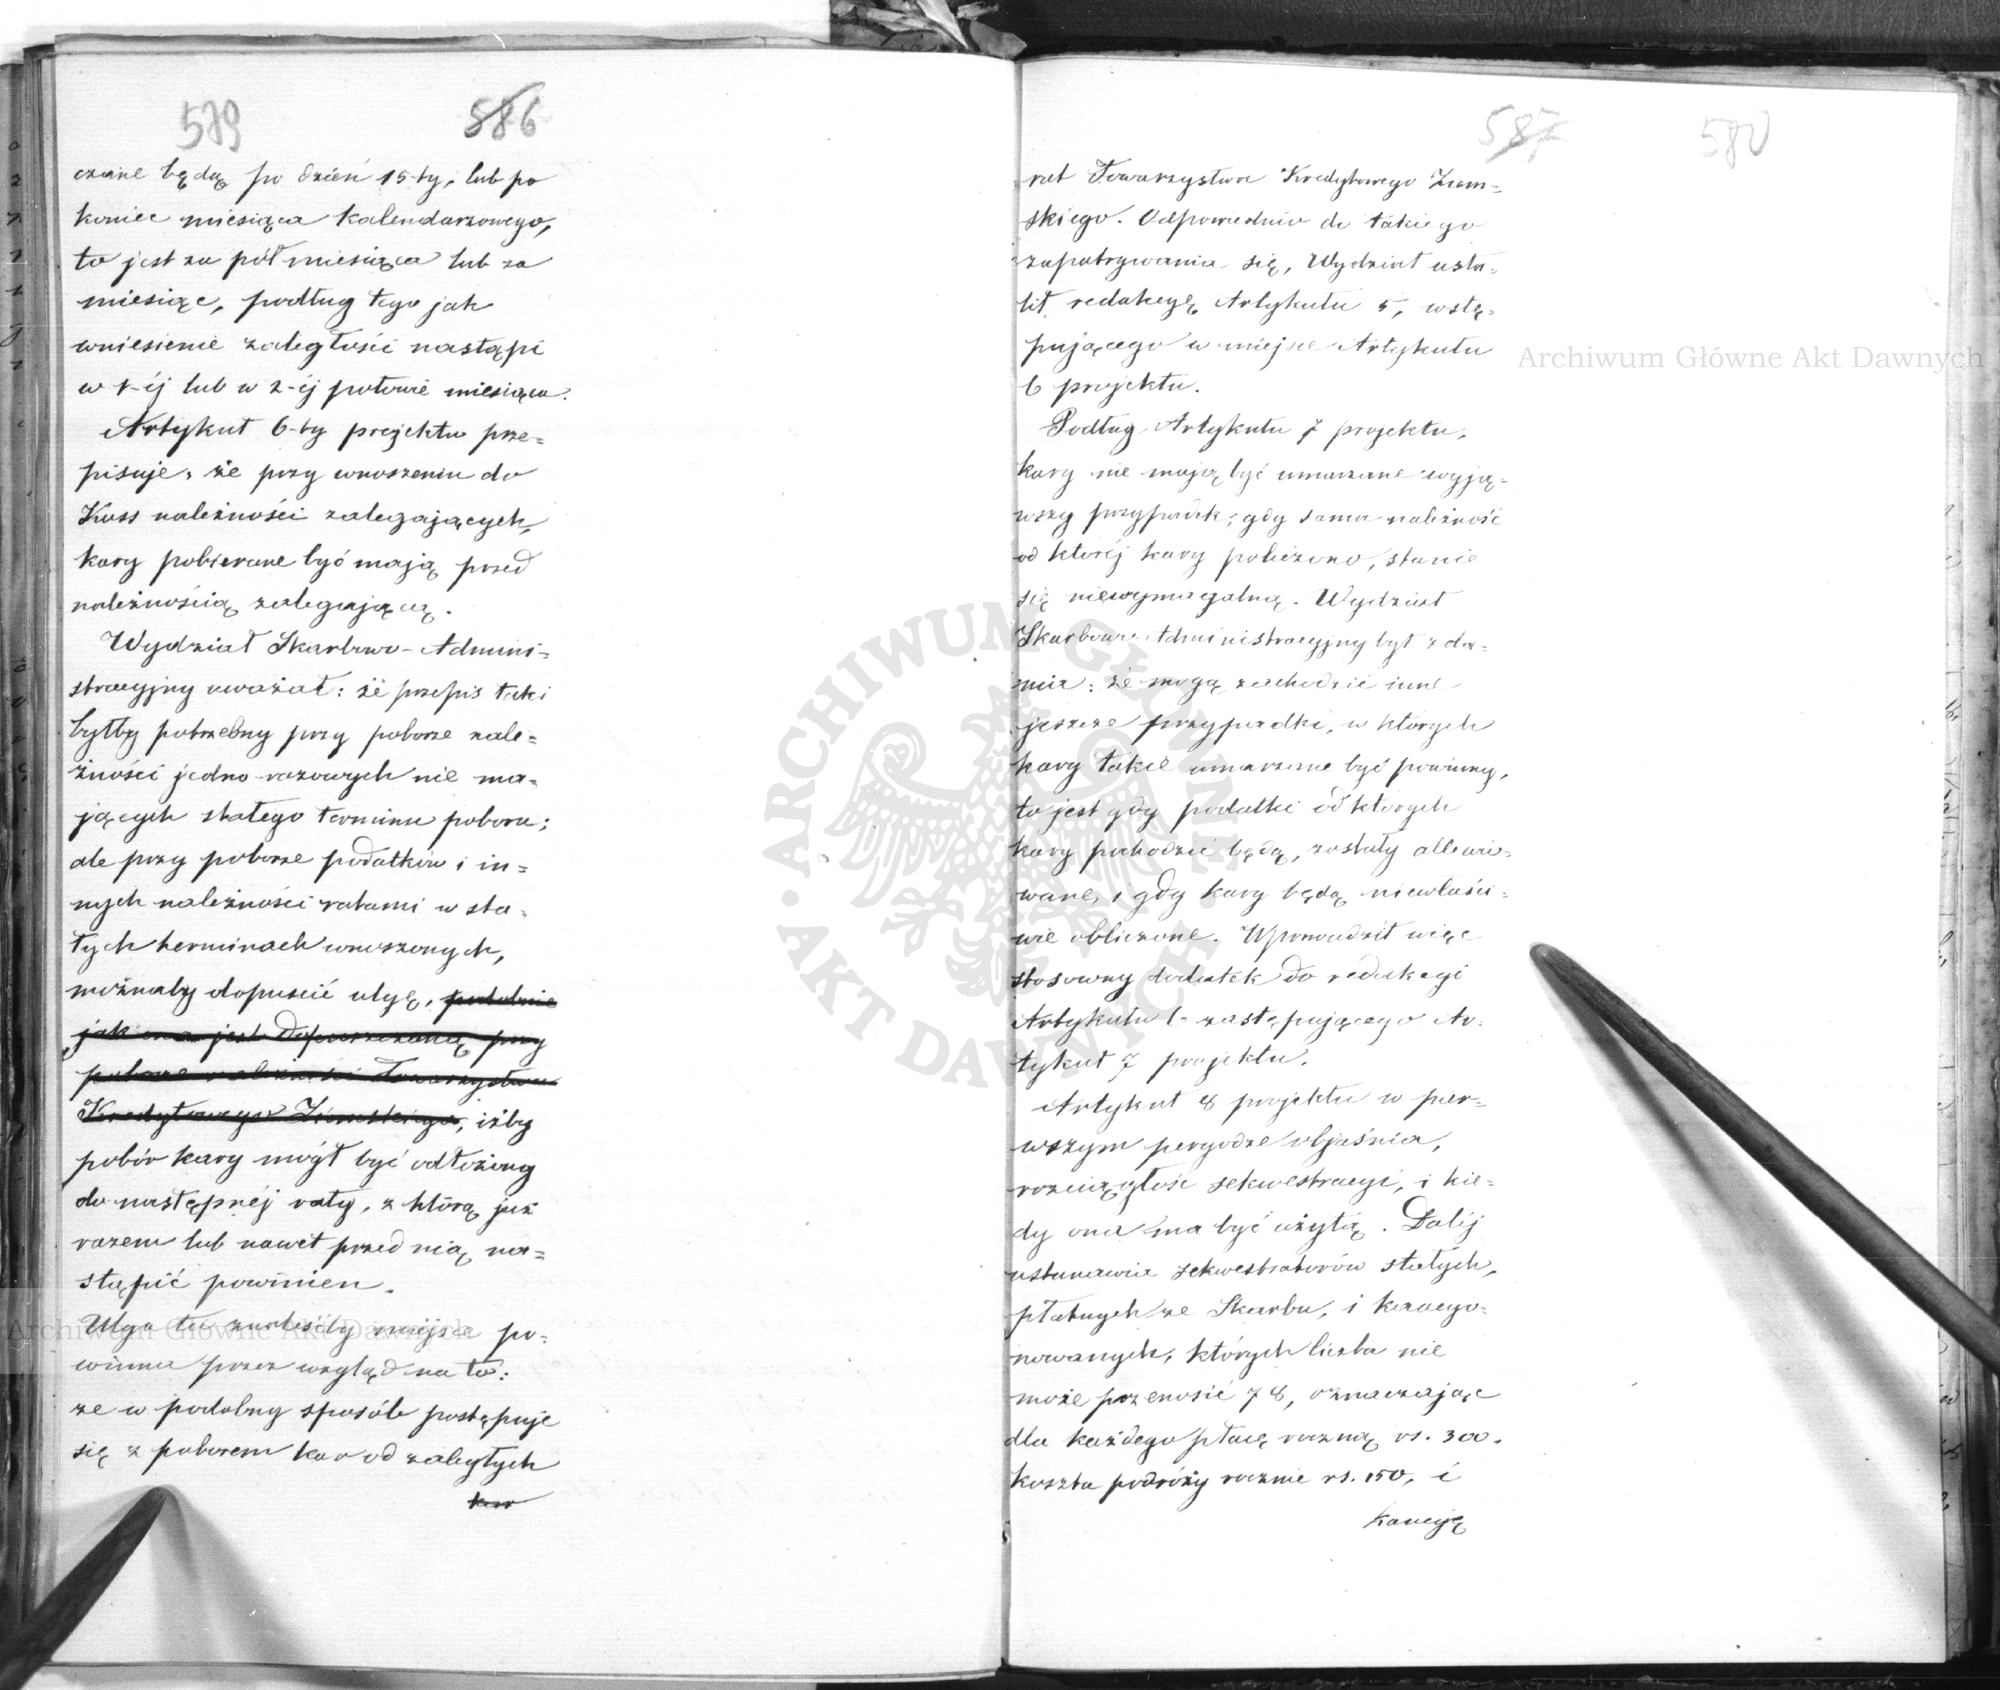 579 586
czane będą po dzień 15-ty, lub po
koniec miesiąca kalendarzowego,
to jest za pół miesiąca lub za
miesiąc, podług tego jak
wniesienie zaległości nastąpi
w 1-éj lub w 2-éj połowie miesiąca.
Artykuł 6-ty projektu prze=
pisuje: że przy wnoszeniu do
Kass należności zalegających,
kary pobierane być mają przed
należnością zalegającą.
Wydział Skarbowo-Admini=
stracyjny uważał: że przepis taki
byłby potrzebny przy poborze nale=
żności jedno-razowych nie ma=
jących stałego terminu poboru;
ale przy poborze podatków i in=
nych należności ratami w sta=
łych terminach wnoszonych,
możnaby dopuścić ulgę, podobnie
jak ona jest dopuszczoną przy
poborze należności Towarzystwa
Kredytowego Ziemskiego, iżby
pobór kary mógł być odłożony
do następnéj raty, z którą już
razem lub nawet przed nią na=
stąpić powinien.
Ulga ta znaleść by miejsce po=
winna przez wzgląd na to:
że w podobny sposób postępuje
się z poborem kar od zaległych
kar
587 580
rat Towarzystwa Kredytowego Ziem=
skiego. Odpowiednio do takiego
zapatrywania się, Wydział usta=
lił redakcyę Artykułu 5, wstę=
pującego w miejsce Artykułu
6 projektu.
Podług Artykułu 7 projektu,
kary nie mają być umarzane wyją=
wszy przypadek, gdy sama należność
od któréj kary policzono, stanie
się niewymagalną. Wydział
Skarbowo-Administracyjny był zda=
nia: że mogą zachodzić inne
jeszcze przypadki, w których
kary takie umarzane być powinny,
to jest gdy podatki od których
kary pochodzić będą, zostały allewio=
wane, i gdy kary będą niewłaści=
wie obliczone. Wprowadził więc
stosowny dodatek do redakcyi
Artykułu 6 zastępującego Ar=
tykuł 7 projektu.
Artykuł 8 projektu w pier=
wszym peryodzie objaśnia,
rozciągłość sekwestracyi, i kie=
dy ona ma być użytą. Daléj
ustanawia sekwestratorów stałych,
płatnych ze Skarbu, i kaucyo=
nowanych, których liczba nie
może przenosić 78, oznaczając
dla każdego płacę roczną rs. 300.
koszta podróży rocznie rs. 150, i
kaucyę
Archiwum Główne Akt Dawnych
Archiwum Główne Akt Dawnych
ARCHIWUM GŁÓWNE · AKT DAWNYCH ·